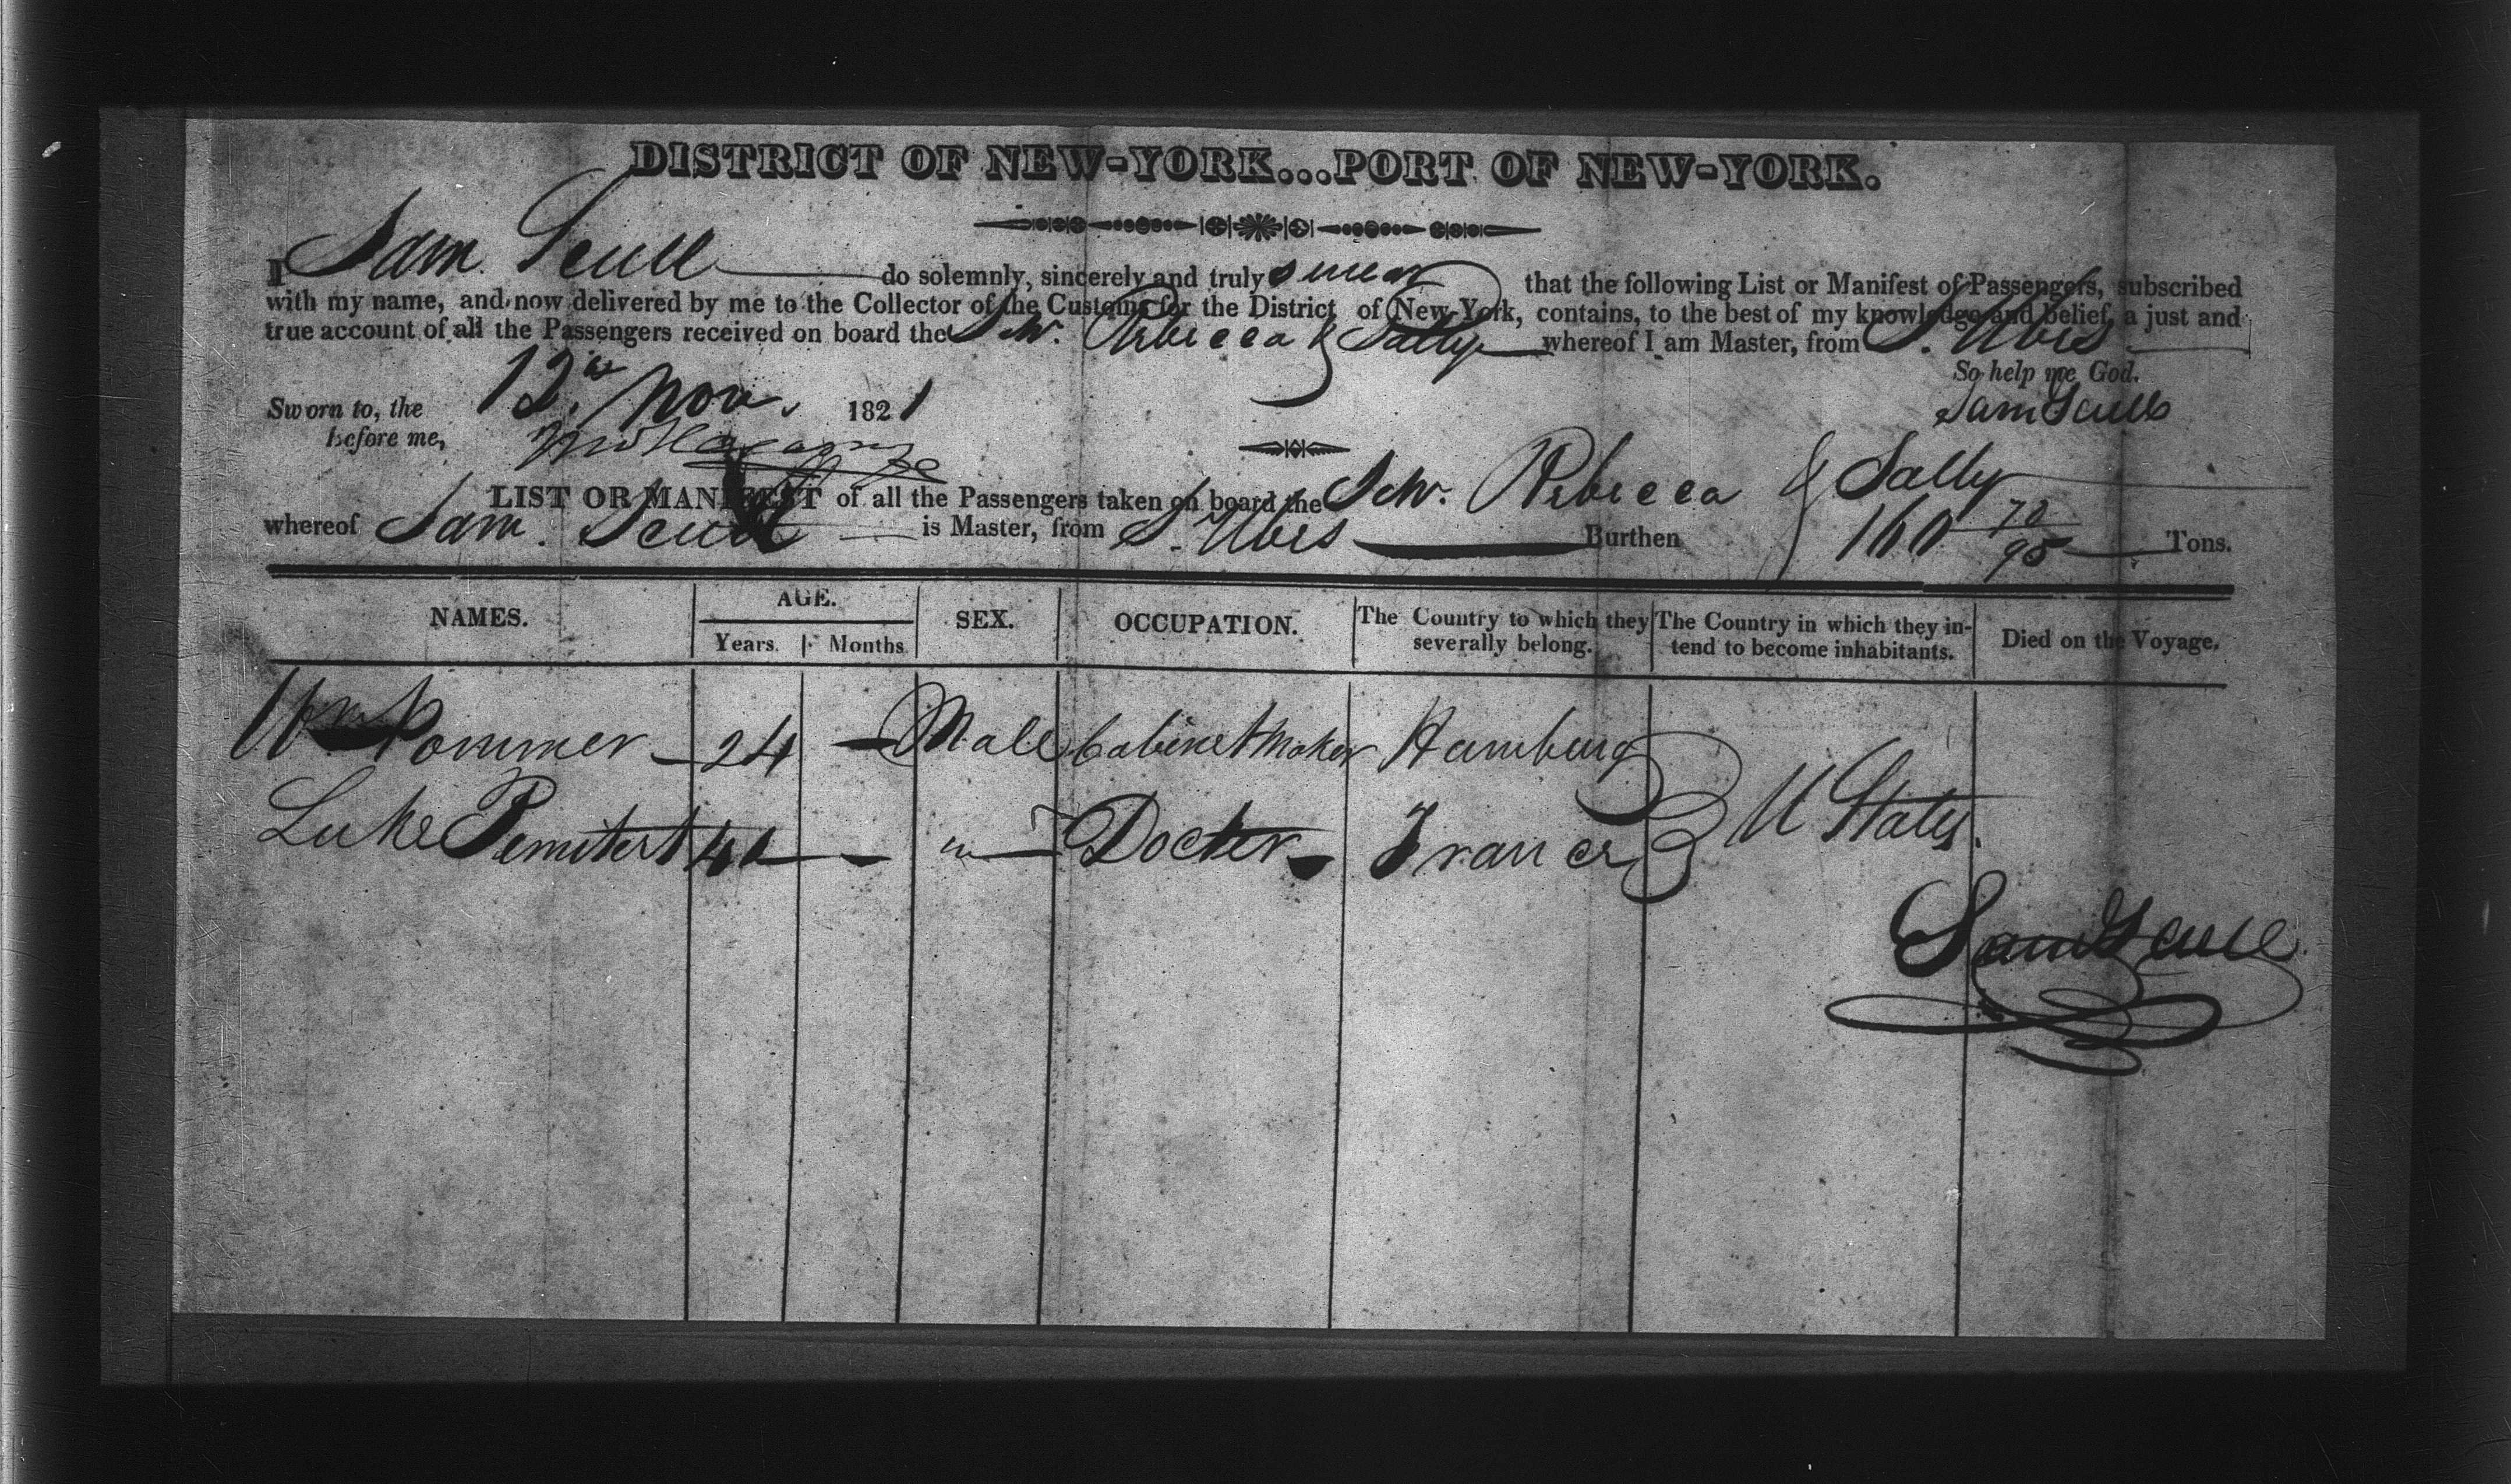 DISTRICT OF NEW-YORK...PORT OF NEW-YORK.
I Sam. Scull do solemnly, sincerely and truly swear that the following List or Manifest of Passengers, subscribed
with my name, and now delivered by me to the Collector of the Customs for the District of New-York, contains, to the best of my knowledge and belief, a just and
true account of all the Passengers received on board the Schr. Rebecca & Sally whereof I am Master, from S. Ubes
So help me God.
Sworn to, the 12th Nov. 1821 Sam Scull
before me,
LIST OR MANIFEST of all the Passengers taken on board the Schr. Rebecca & Sally
whereof Sam. Scull is Master, from S. Ubes Burthen 160 70/95 Tons.
NAMES. AGE. SEX. OCCUPATION. The Country to which they severally belong. The Country in which they intend to become inhabitants. Died on the Voyage.
Years. Months.
Wm Pommer 24 — Male Cabinet Maker Hamburg
Luke — " Docter France U States.
Sam Scull